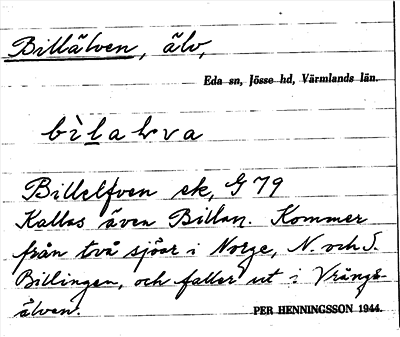 Billälven, älv,
Eda sn, Jösse hd, Värmlands län.
bìlalva
Billelfven ek, G 79
Kallas även Billan. Kommer
från två sjöar i Norge, N. och S.
Billingen, och faller ut i Vrångs-
älven.
PER HENNINGSSON 1944.